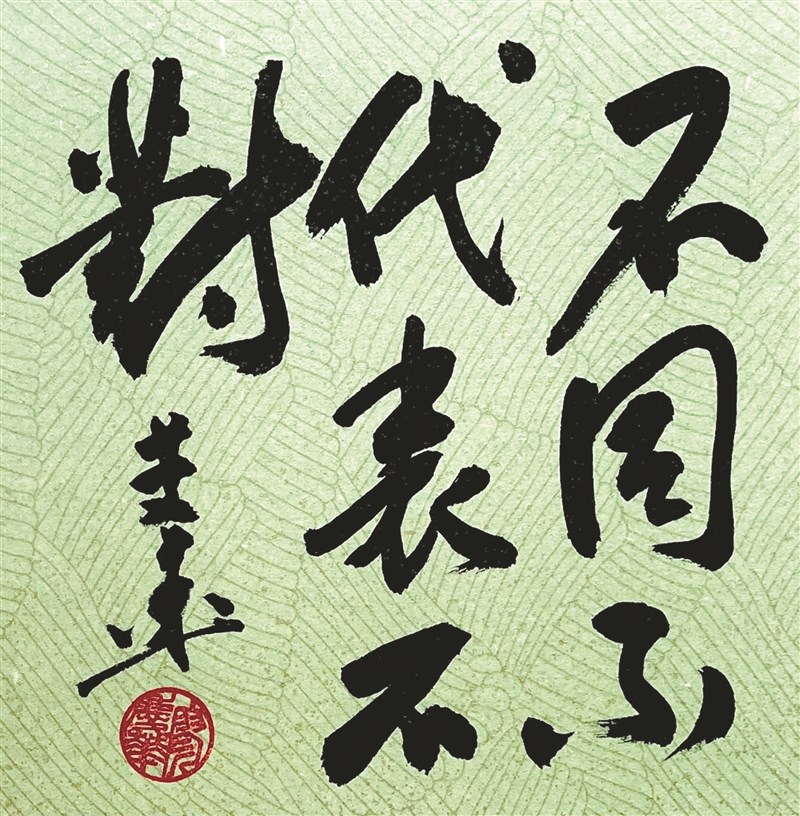 不同不
代表不
對